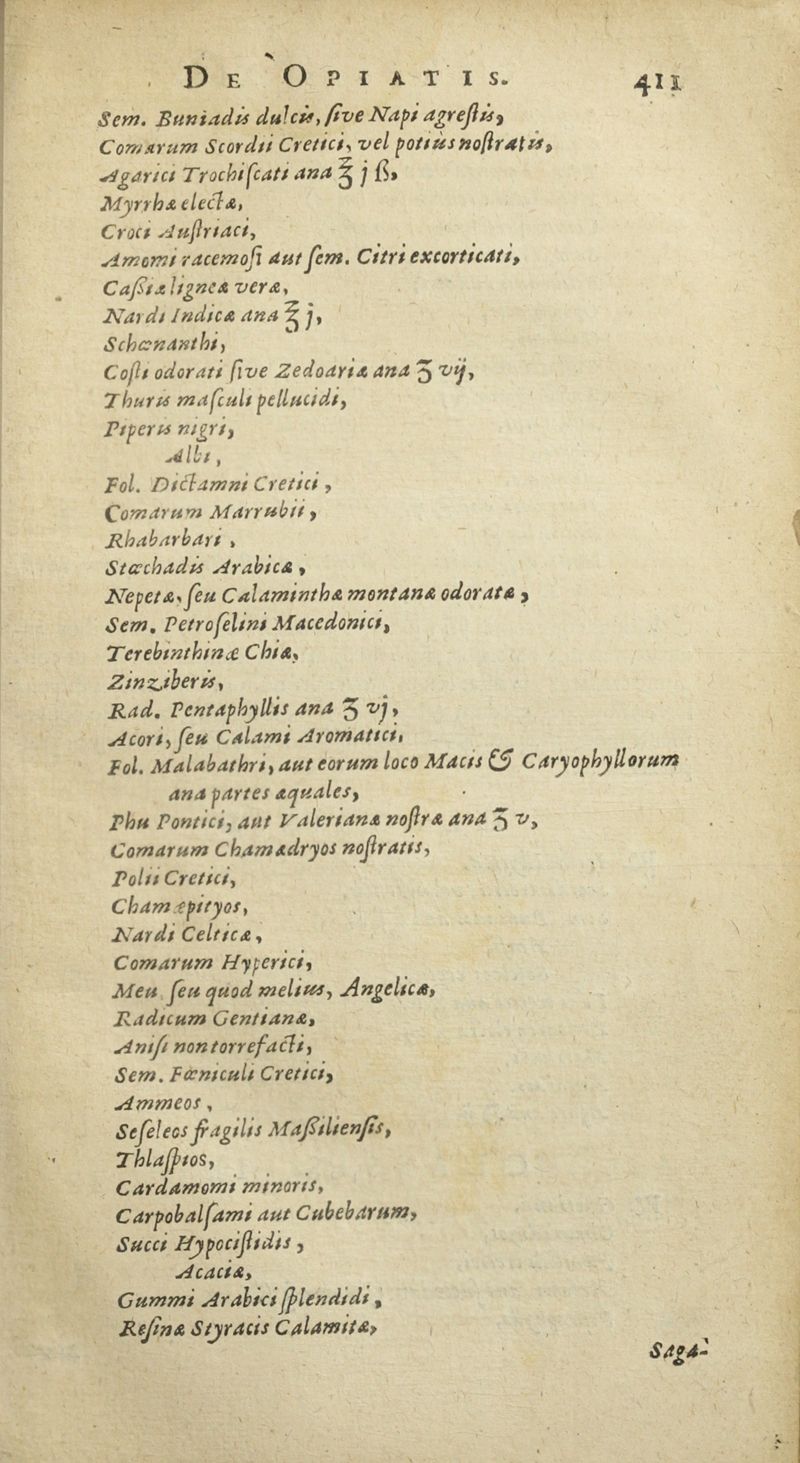 DE OPIATIS. 411
Sem. Buniadis dulcis, ſive Napi agreſtis,
Comarum Scordii Cretici, vel potiùs noſtratis,
Agarici Trochiſcati ana ℥ j ß,
Myrrhæ electæ,
Croci Auſtriaci,
Amomi racemoſi aut ſem. Citri excorticati,
Caßiæ ligneæ veræ,
Nardi Indicæ ana ℥ j,
Schœnanthi,
Coſti odorati ſive Zedoariæ ana ʒ vij,
Thuris maſculi pellucidi,
Piperis nigri,
Albi,
Fol. Dictamni Cretici,
Comarum Marrubii,
Rhabarbari,
Stœchadis Arabicæ,
Nepetæ, ſeu Calaminthæ montanæ odoratæ,
Sem. Petroſelini Macedonici,
Terebinthinæ Chiæ,
Zinziberis,
Rad. Pentaphyllis ana ʒ vj,
Acori, ſeu Calami Aromatici,
Fol. Malabathri, aut eorum loco Macis & Caryophyllorum
ana partes æquales,
Phu Pontici, aut Valerianæ noſtræ ana ʒ v,
Comarum Chamædryos noſtratis,
Polii Cretici,
Chamæpityos,
Nardi Celticæ,
Comarum Hyperici,
Meu ſeu quod melius, Angelicæ,
Radicum Gentianæ,
Aniſi non torrefacti,
Sem. Fœniculi Cretici,
Ammeos,
Seſeleos fragilis Maßilienſis,
Thlaſpios,
Cardamomi minoris,
Carpobalſami aut Cubebarum,
Succi Hypociſtidis,
Acaciæ,
Gummi Arabici ſplendidi,
Reſinæ Styracis Calamitæ,
Saga-